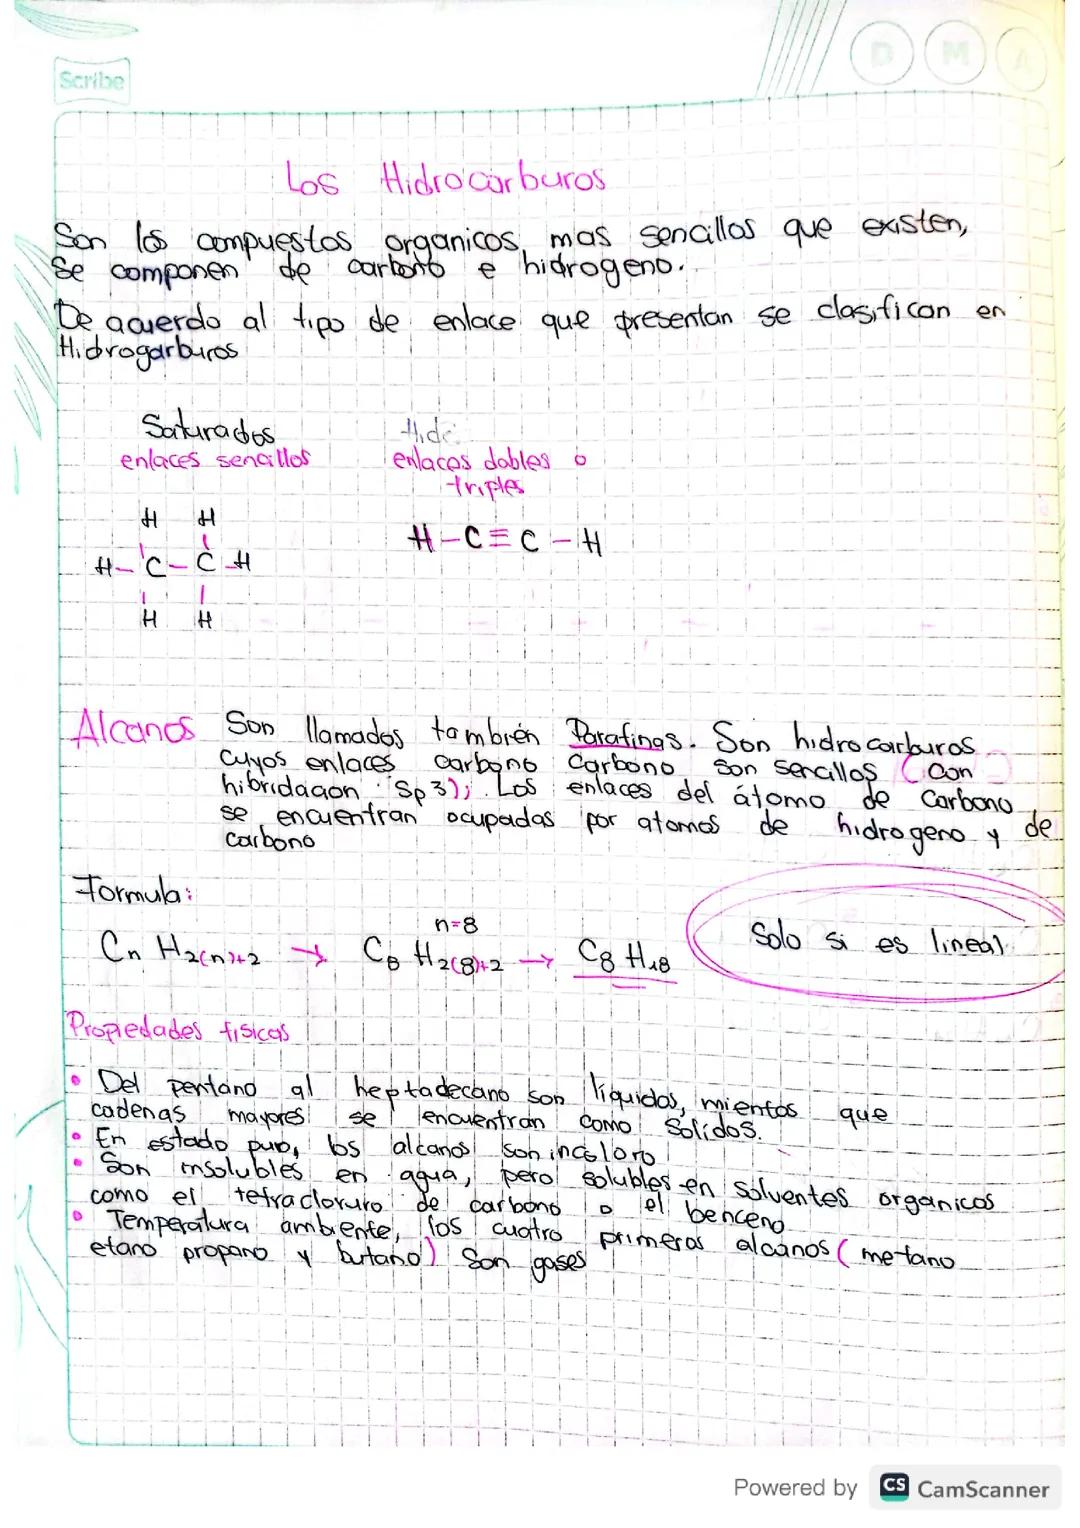 Scribe
D M A
Los Hidrocarburos
Son los compuestos organicos, mas sencillos que existen,
Se componen de carbono e hidrogeno.
De acuerdo al tipo de enlace que presentan se clasifican en
Hidrogarburos
Saturados
enlaces sencillos
Hidc
enlaces dobles o
triples
H H
H-C-C-H
H H
H-C≡C-H
Alcanos Son llamados también Parafinas. Son hidrocarburos
cuyos enlaces carbono carbono son sencillos (con
hibridacion Sp3); Los enlaces del átomo de Carbono
se encuentran ocupadas por atomos de hidrogeno y de
carbono
Formula:
n=8
Cn H2(n)+2 → C8 H2(8)+2 → C8 H18
Solo si es lineal
Propiedades fisicas
• Del pentano al heptadecano son líquidos, mientas que
cadenas mayores se encuentran como Solidos.
• En estado puro, los alcanos son incoloro
• Son insolubles en agua, pero solubles en solventes organicos
como el tetracloruro de carbono o el benceno
• Temperatura ambiente, los cuatro primeros alcanos (metano
etano propano y butano) Son gases
Powered by CS CamScanner